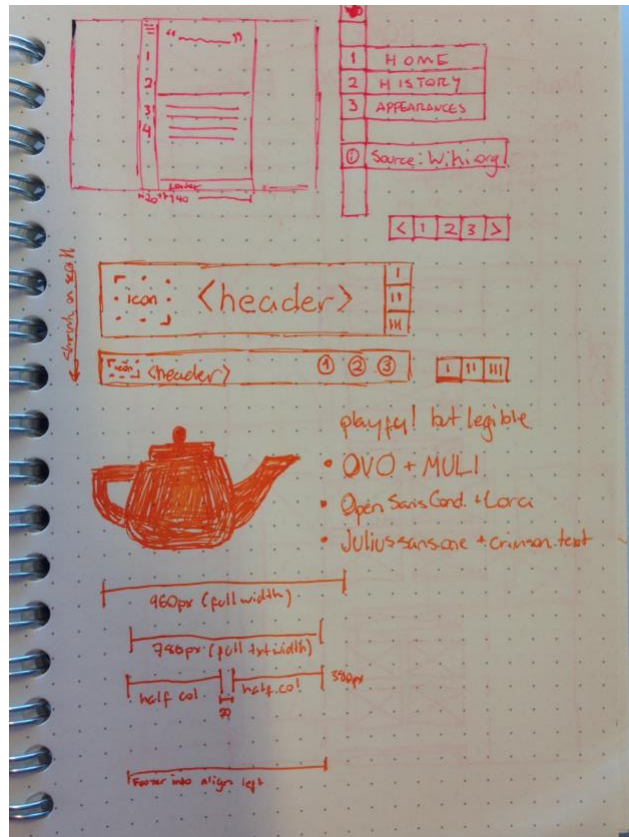 1
2
3
4
1 HOME
2 HISTORY
3 APPEARANCES
Source: Wiki.org
< 1 2 3 >
shrink on scroll
icon <header>
I
II
III
icon <header> 1 2 3
I II III
playful but legible
• OVO + MULI
• Open Sans Cond. +
• Julius sans one + crimson text
960px (full width)
780px (full txt width)
half col. half col 380px
20
Footer into align left